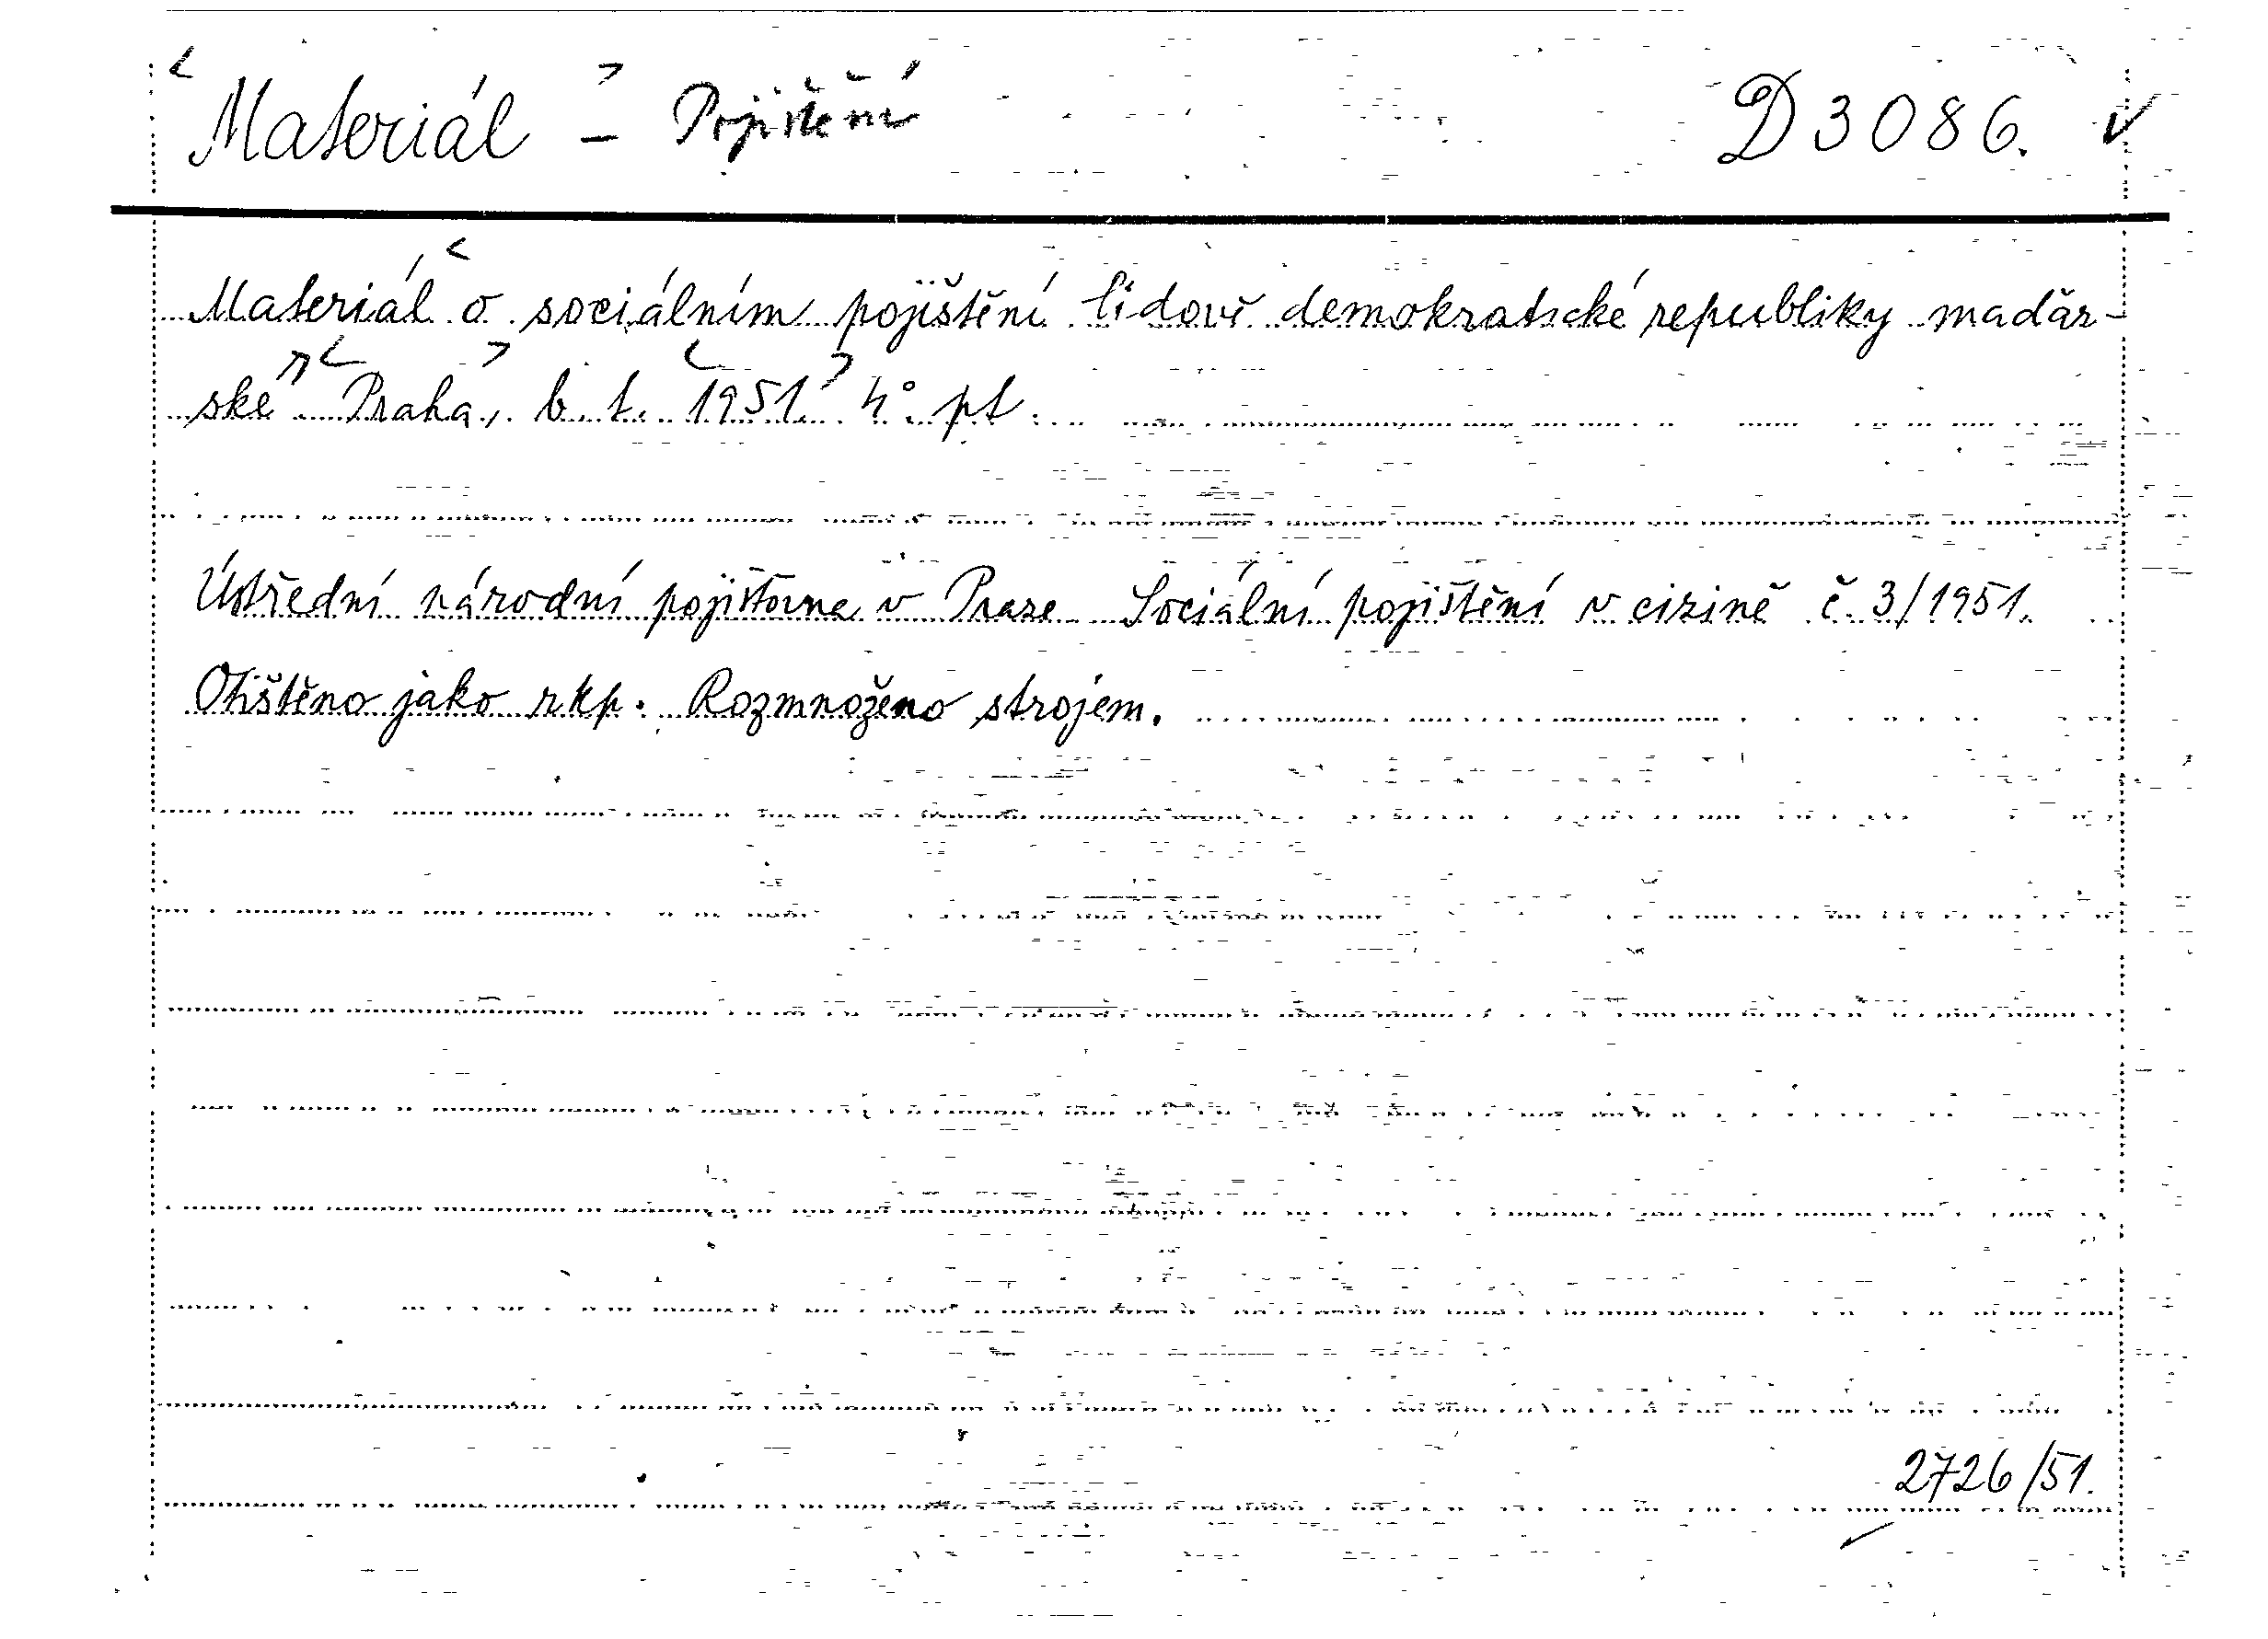 Materiál - Pojištění D 3086.
Materiál o sociálním pojištění lidově demokratické republiky maďar-
ské Praha, b. t. 1951. 4° pt.
Ústřední národní pojišťovna v Praze Sociální pojištění v cizině č. 3/1951.
Otištěno jako rkp. Rozmnoženo strojem.
2726/51.